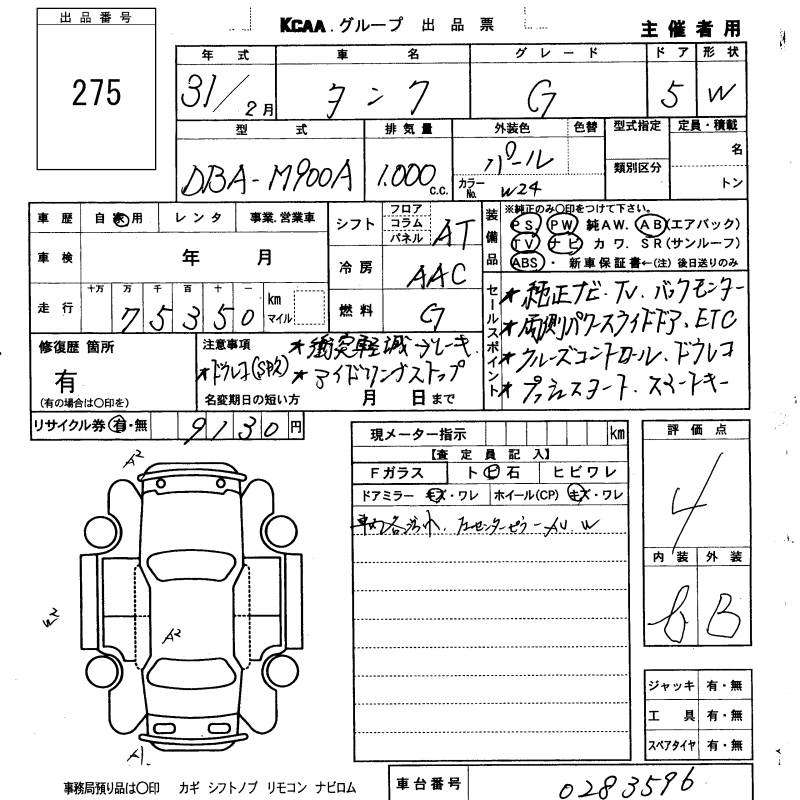 出品番号
275
KCAA.グループ 出品票
主催者用
年式 車名 グレード ドア 形状
31/2月 タンク G 5 W
型式 排気量 外装色 色替 型式指定 定員・積載
DBA-M900A 1.000c.c. パール
カラーNo. W24
類別区分
名
トン
車歴 自家用 レンタ 事業.営業車
車検 年 月
走行 十万 万 千 百 十 一
75350 km マイル
シフト フロア コラム パネル AT
冷房 AAC
燃料 G
装備品
※純正のみ○印をつけて下さい。
PS. PW 純AW. AB(エアバック)
TV ナビ カワ. SR(サンルーフ)
ABS・ 新車保証書←(注)後日送りのみ
セールスポイント
★純正ナビ.TV.バックモニター
★両側パワースライドドア.ETC
★クルーズコントロール.ドラレコ
★プッシュスタート.スマートキー
修復歴 箇所
有
(有の場合は○印を)
注意事項
★衝突軽減ブレーキ.
★ドラレコ(SP込)
★アイドリングストップ
名変期日の短い方 月 日まで
リサイクル券 有・無 9130円
現メーター指示 km
【査定員記入】
Fガラス ト ビ 石 ヒビワレ
ドアミラー キズ・ワレ ホイール(CP) キズ・ワレ
評価点
4
内装 外装
B
A2
W2
A2
A1
ジャッキ 有・無
工具 有・無
スペアタイヤ 有・無
事務局預り品は○印 カギ シフトノブ リモコン ナビロム
車台番号 0283596